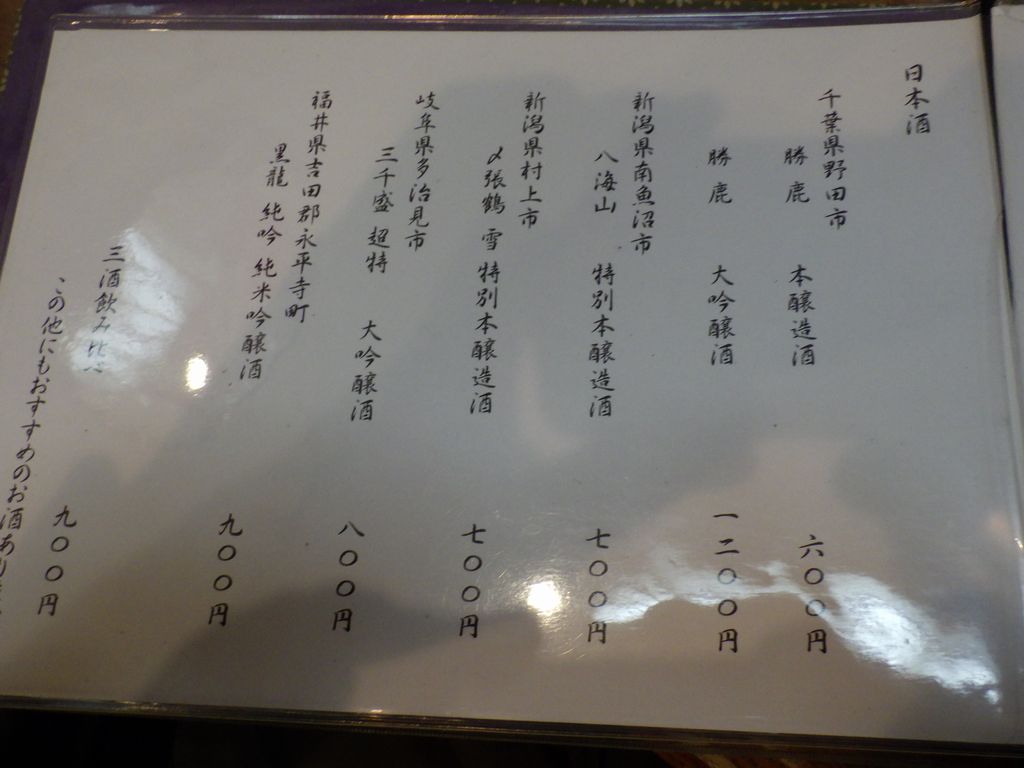 日本酒
千葉県野田市
勝鹿 本醸造酒 六〇〇円
勝鹿 大吟醸酒 一二〇〇円
新潟県南魚沼市
八海山 特別本醸造酒 七〇〇円
新潟県村上市
〆張鶴 雪 特別本醸造酒 七〇〇円
岐阜県多治見市
三千盛 超特 大吟醸酒 八〇〇円
福井県吉田郡永平寺町
黒龍 純吟 純米吟醸酒 九〇〇円
三酒飲み比べ 九〇〇円
この他にもおすすめのお酒あり